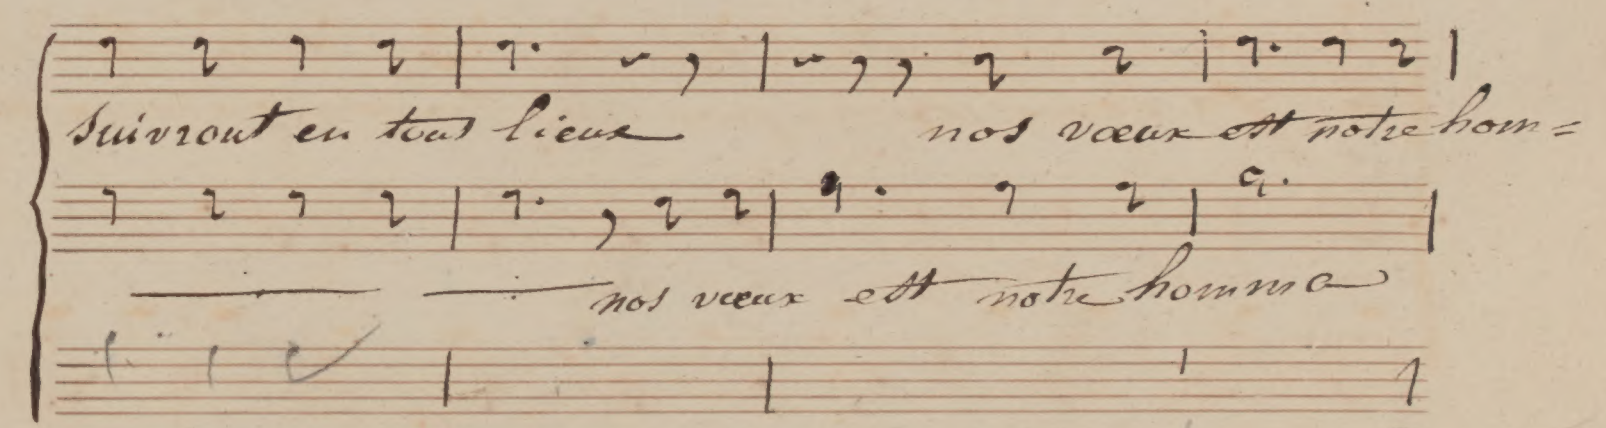 suivront en tous lieux nos vœux est notre hom=
nos vœux est notre homme